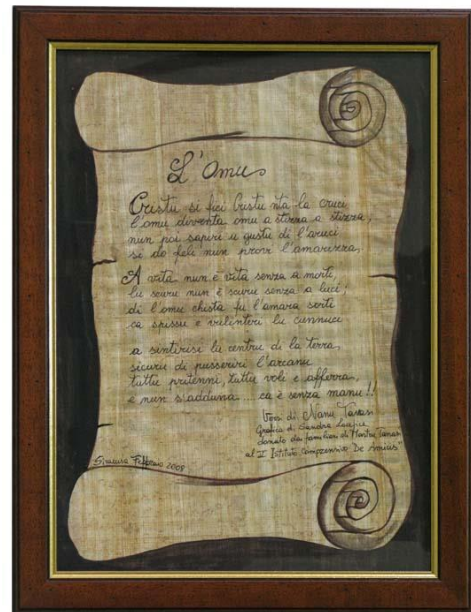 L'Omu
Cristu si fici Cristu 'nta la cruci,
l'omu diventa omu a stizza a stizza;
nun poi sapiri u gustu di l'aruci
si do feli nun provi l'amarizza,
A vita nun è vita senza a morti,
lu scuru nun è scuru senza a luci;
di l'omu chista fu l'amara sorti
ca spissu e valinteri lu cunnuci
a sintirisi lu centru di la terra
sicuru di pussediri l'arcanu
tuttu pritenni, tuttu voli e afferra,
e nun s'adduna.... ca è senza manu!!
Versi di Nanu
Grafica di Sandra
donato dai familiari di Mastru
al I Istituto Comprensivo "De Amicis"
Siracusa Febbraio 2008